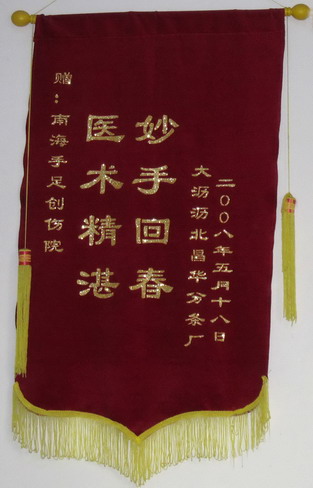 赠：南海手足创伤院
医术精湛
妙手回春
大沥沥北昌华分条厂
二〇〇八年五月十八日